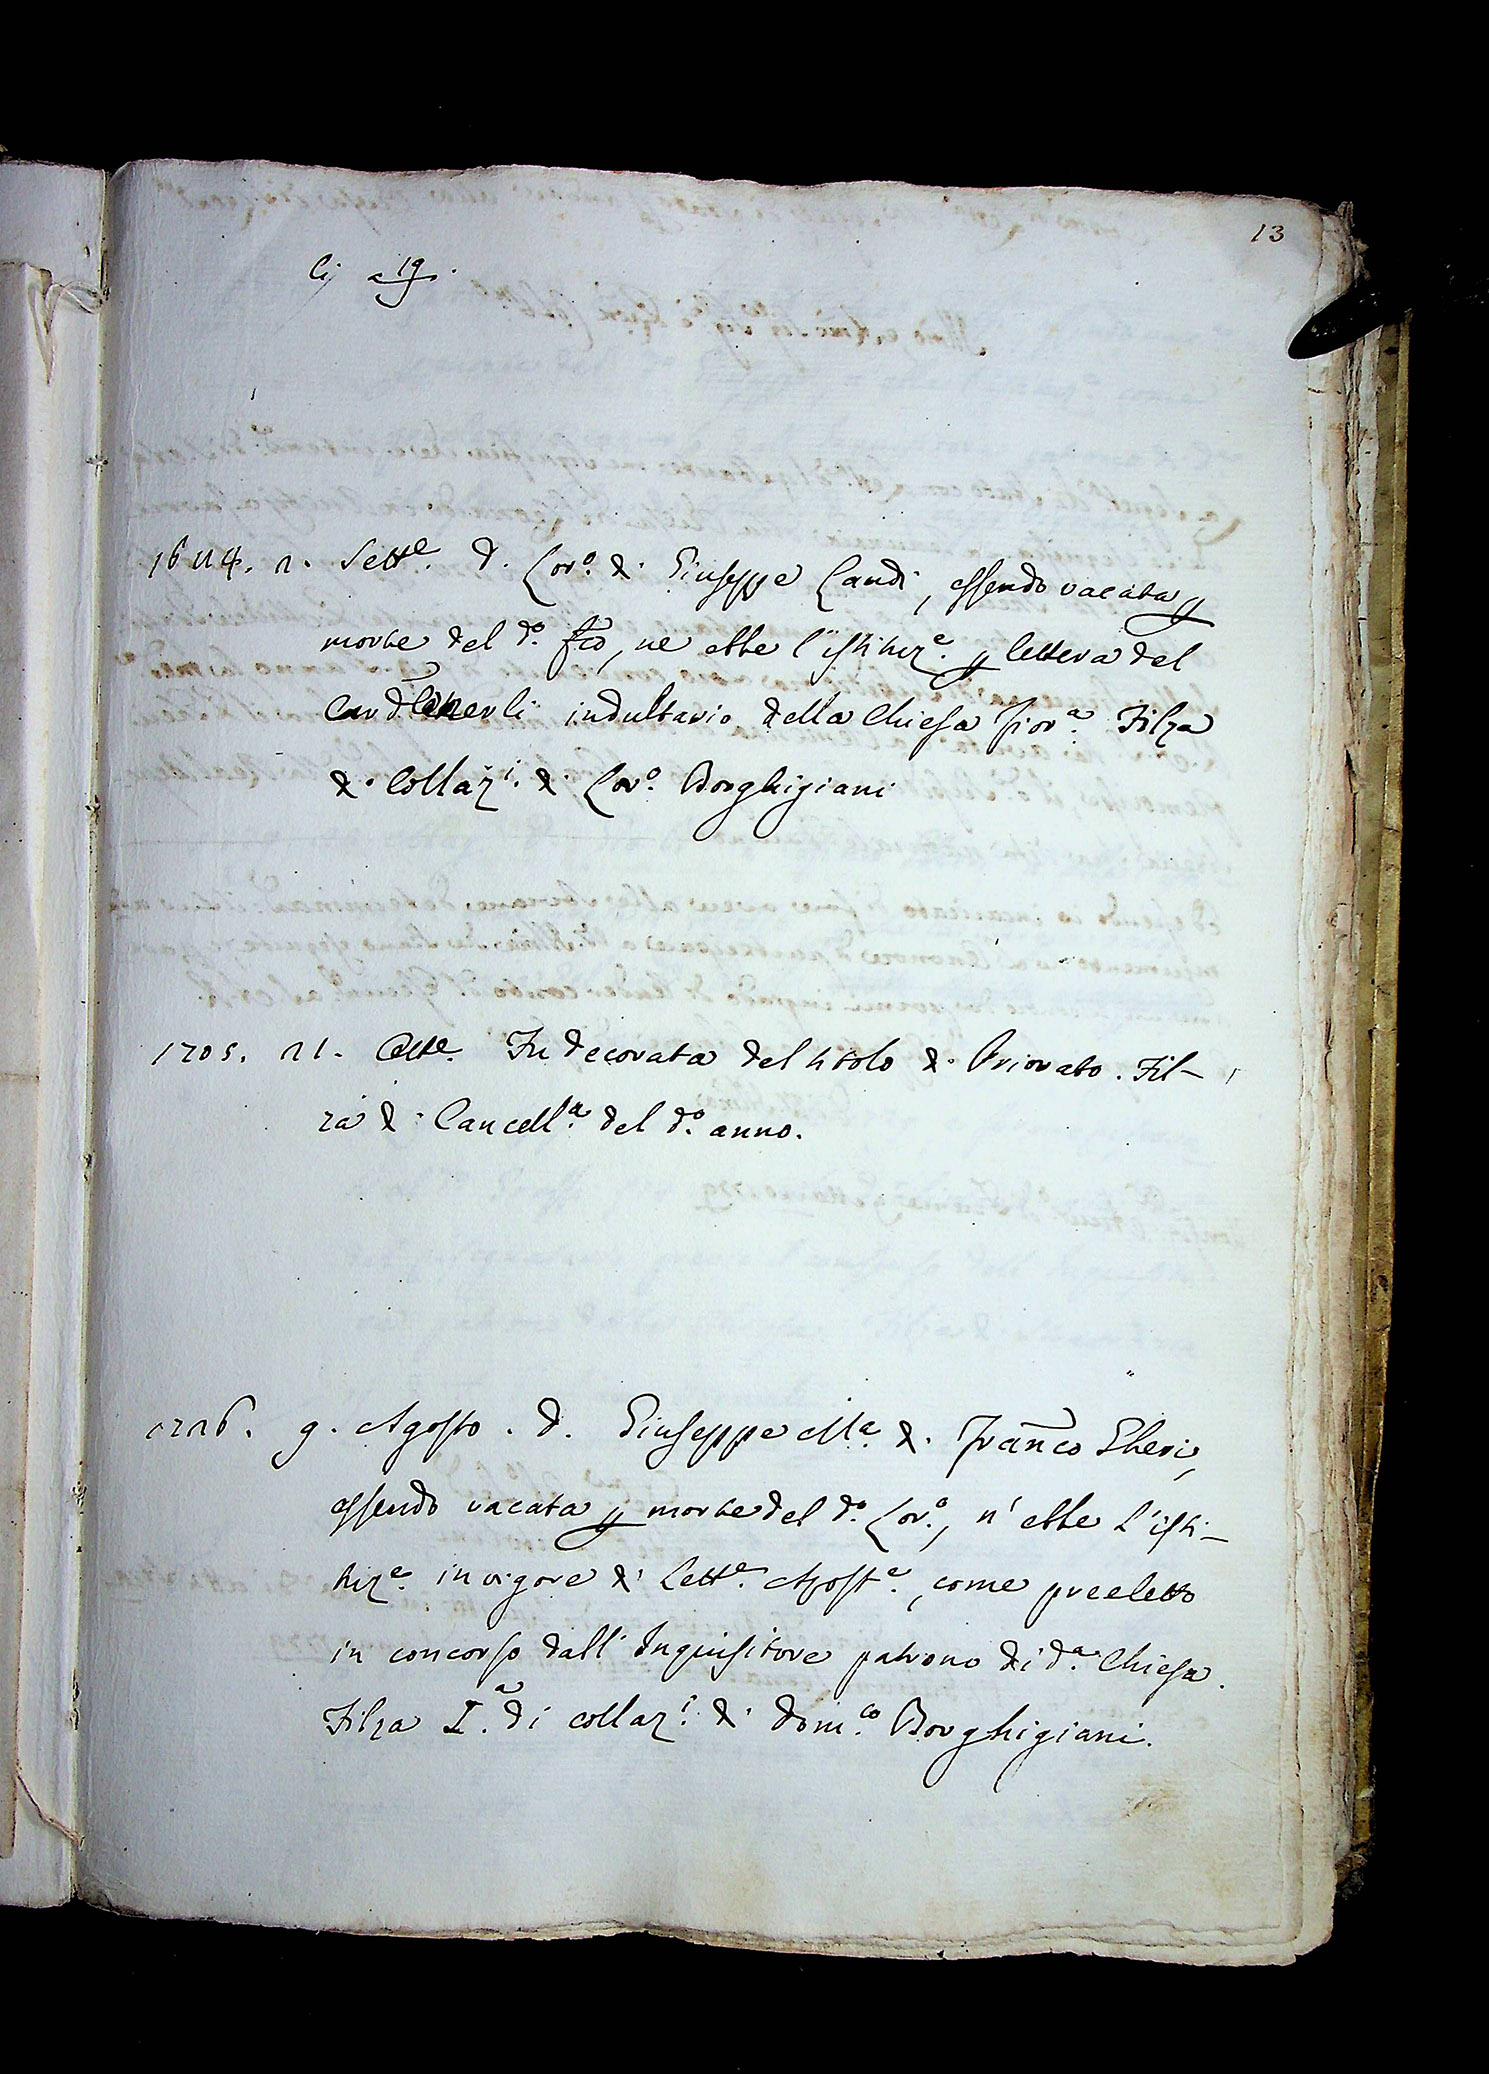 13
1684. 2. Sett.e D. Lor.o di Giuseppe Landi, essendo vacata p
morte del d.o Fco, ne ebbe l'istituz.e p lettera del
Card. Nerli indultario della Chiesa fior.a Filza
di Collaz.i di Lor.o Borghigiani
1705. 21. Ott.e Fu decorata del titolo di Priorato. Fil-
za di Cancell.a del d.o anno.
1726. 9. Agosto. D. Giuseppe Ma. di Franco Eberi,
essendo vacata p morte del d.o Lor.o, n'ebbe l'isti-
tuz.e in vigore di Lett.e Apost.e, come preeletto
in concorso dall'Inquisitore patrono di d.a Chiesa.
Filza I.a di collaz.i di Dom.co Borghigiani.